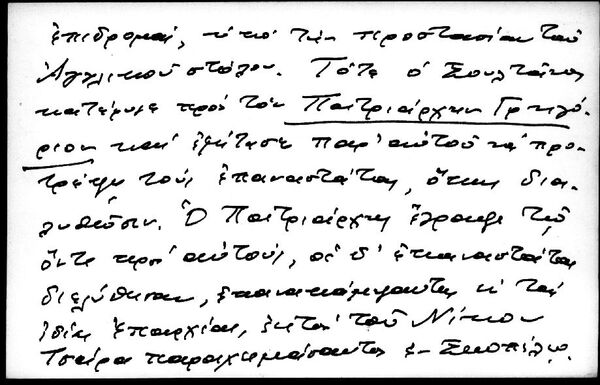 ἐπιδρομαί, ὑπὸ τὴν προστασίαν τοῦ
Ἀγγλικοῦ στόλου. Τότε ὁ Σουλτάνος
κατέφυγε πρὸς τὸν Πατριάρχην Γρηγό-
ριον καὶ ἐζήτησε παρ' αὐτοῦ νὰ προ-
τρέψῃ τοὺς ἐπαναστάτας, ὅπως δια-
λυθῶσιν. Ὁ Πατριάρχης ἔγραψε τῷ
ὄντι πρὸς αὐτούς, οἱ δ' ἐπαναστάται
διελύθησαν, ἐπανακάμψαντες εἰς τὰς
ἰδίας ἐπαρχίας, ἐκτὸς τοῦ Νίκου
Τσάρα παραχειμάσαντος ἐν Σκοπέλῳ.